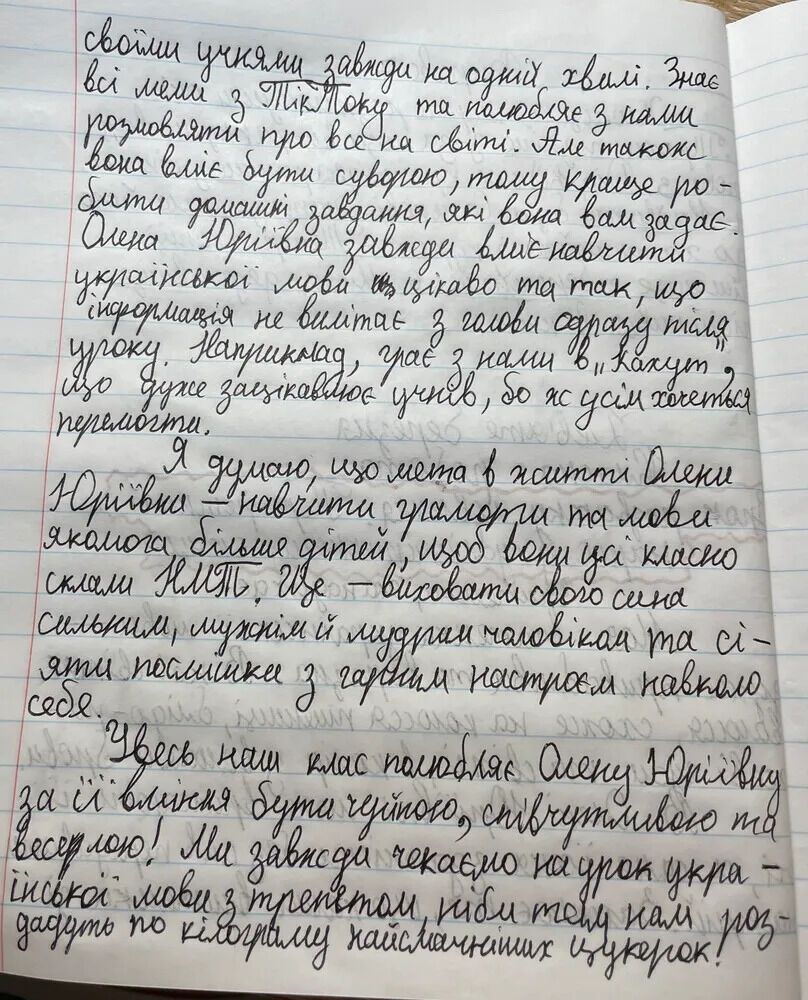 своїми учнями завжди на одній хвилі. Знає
всі меми з ТікТоку та полюбляє з нами
розмовляти про все на світі. Але також
вона вміє бути суворою, тому краще ро-
бити домашні завдання, які вона вам задає.
Олена Юріївна завжди вміє навчити
української мови цікаво та так, що
інформація не вилітає з голови одразу після
уроку. Наприклад, грає з нами в „Кахут",
що дуже зацікавлює учнів, бо ж усім хочеться
перемогти.
Я думаю, що мета в житті Олени
Юріївни – навчити грамоти та мови
якомога більше дітей, щоб вони усі класно
склали НМТ. Ще – виховати свого сина
сильним, мужнім й мудрим чоловіком та сі-
яти посмішки з гарним настроєм навколо
себе.
Увесь наш клас полюбляє Олену Юріївну
за її вміння бути чуйною, співчутливою та
веселою! Ми завжди чекаємо на урок укра-
їнської мови з трепетом, ніби там нам роз-
дадуть по кілограму найсмачніших цукерок!